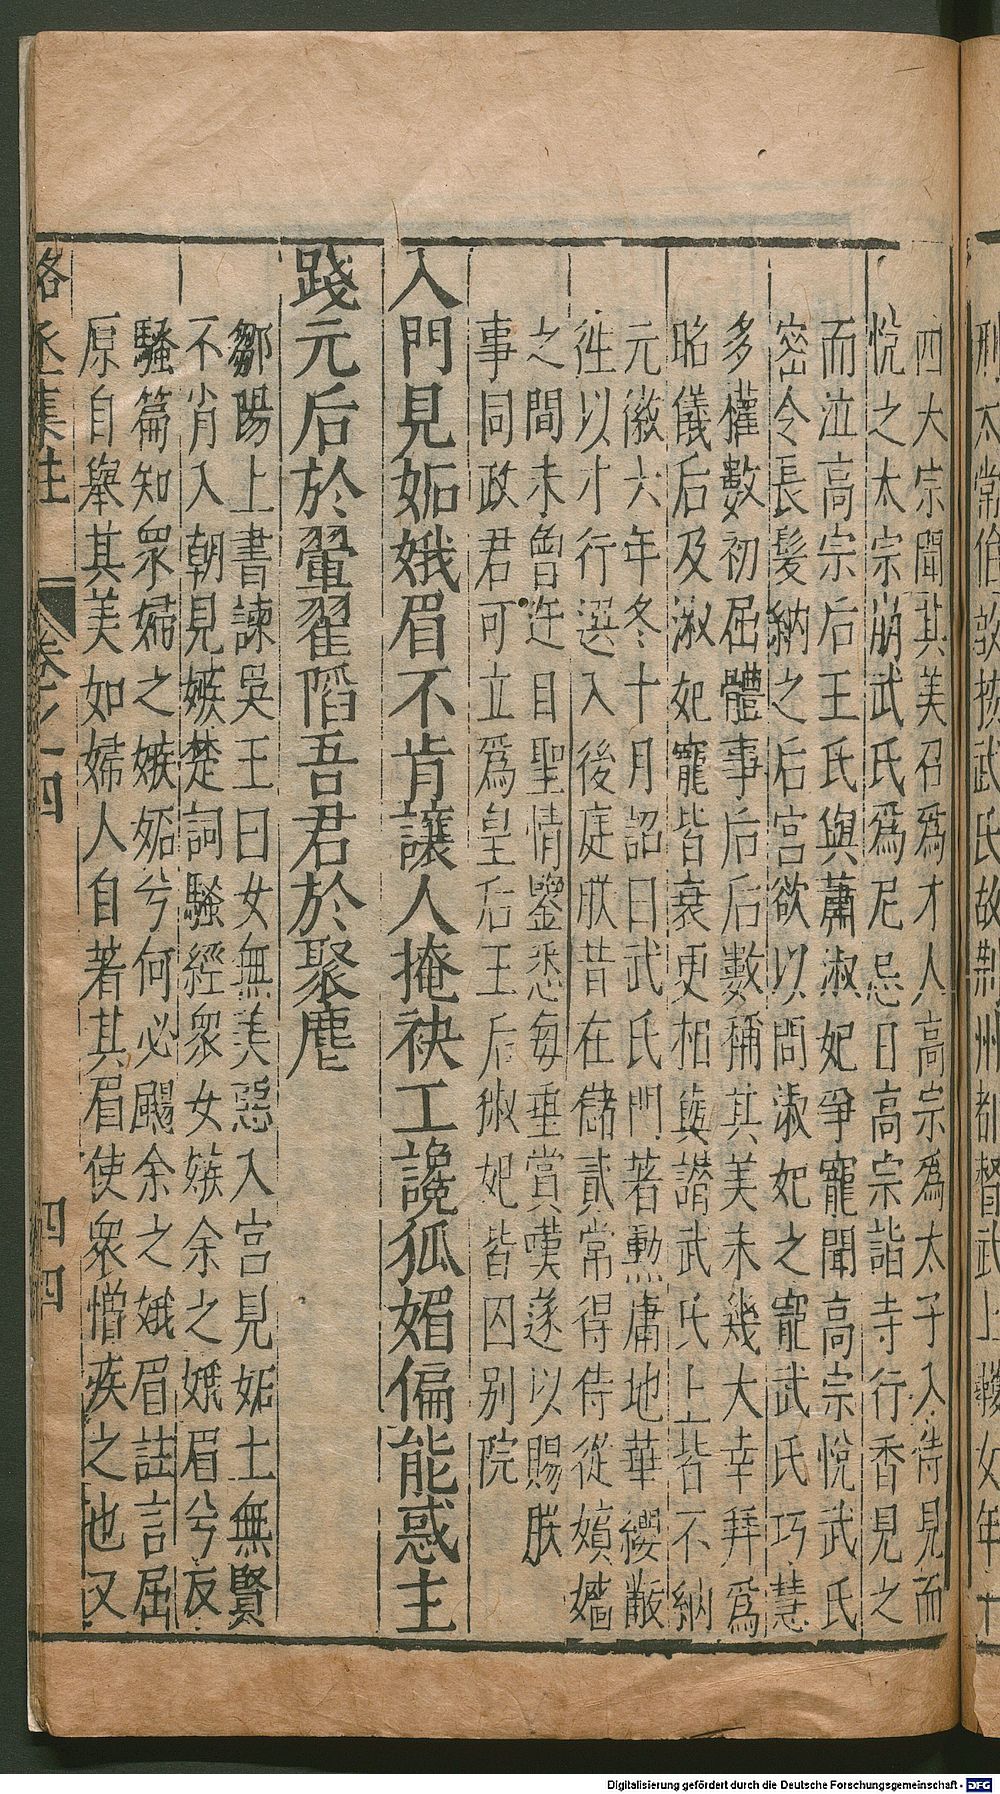 刑太常伯敦揀武氏故荆州都督武士彠女年十
四大宗聞其美召爲才人高宗爲太子入侍見而
悅之太宗崩武氏爲尼忌日高宗詣寺行香見之
而泣高宗后王氏與蕭淑妃爭寵聞高宗悅武氏
密令長髮納之后宮欲以間淑妃之寵武氏巧慧
多權數初屈體事后后數稱其美未幾大幸拜爲
昭儀后及淑妃寵皆衰更相與譖武氏上皆不納
元徽六年冬十月詔曰武氏門著勳庸地華纓黻
徃以才行選入後庭朕昔在儲貳常得侍從嬪嬙
之間未曾迕目聖情鑒悉每垂賞嘆遂以賜朕
事同政君可立爲皇后王后淑妃皆囚別院
入門見妬娥眉不肯讓人掩袂工讒狐媚偏能惑主
踐元后於翬翟陷吾君於聚麀
鄒陽上書諫吳王曰女無美惡入宮見妬士無賢
不肖入朝見嫉楚詞騷經衆女嫉余之娥眉兮反
騷篇知衆嫭之嫉妬兮何必颺余之娥眉註言屈
原自舉其美如婦人自著其眉使衆憎疾之也又
駱丞集註 卷之四 四四
Digitalisierung gefördert durch die Deutsche Forschungsgemeinschaft - DFG